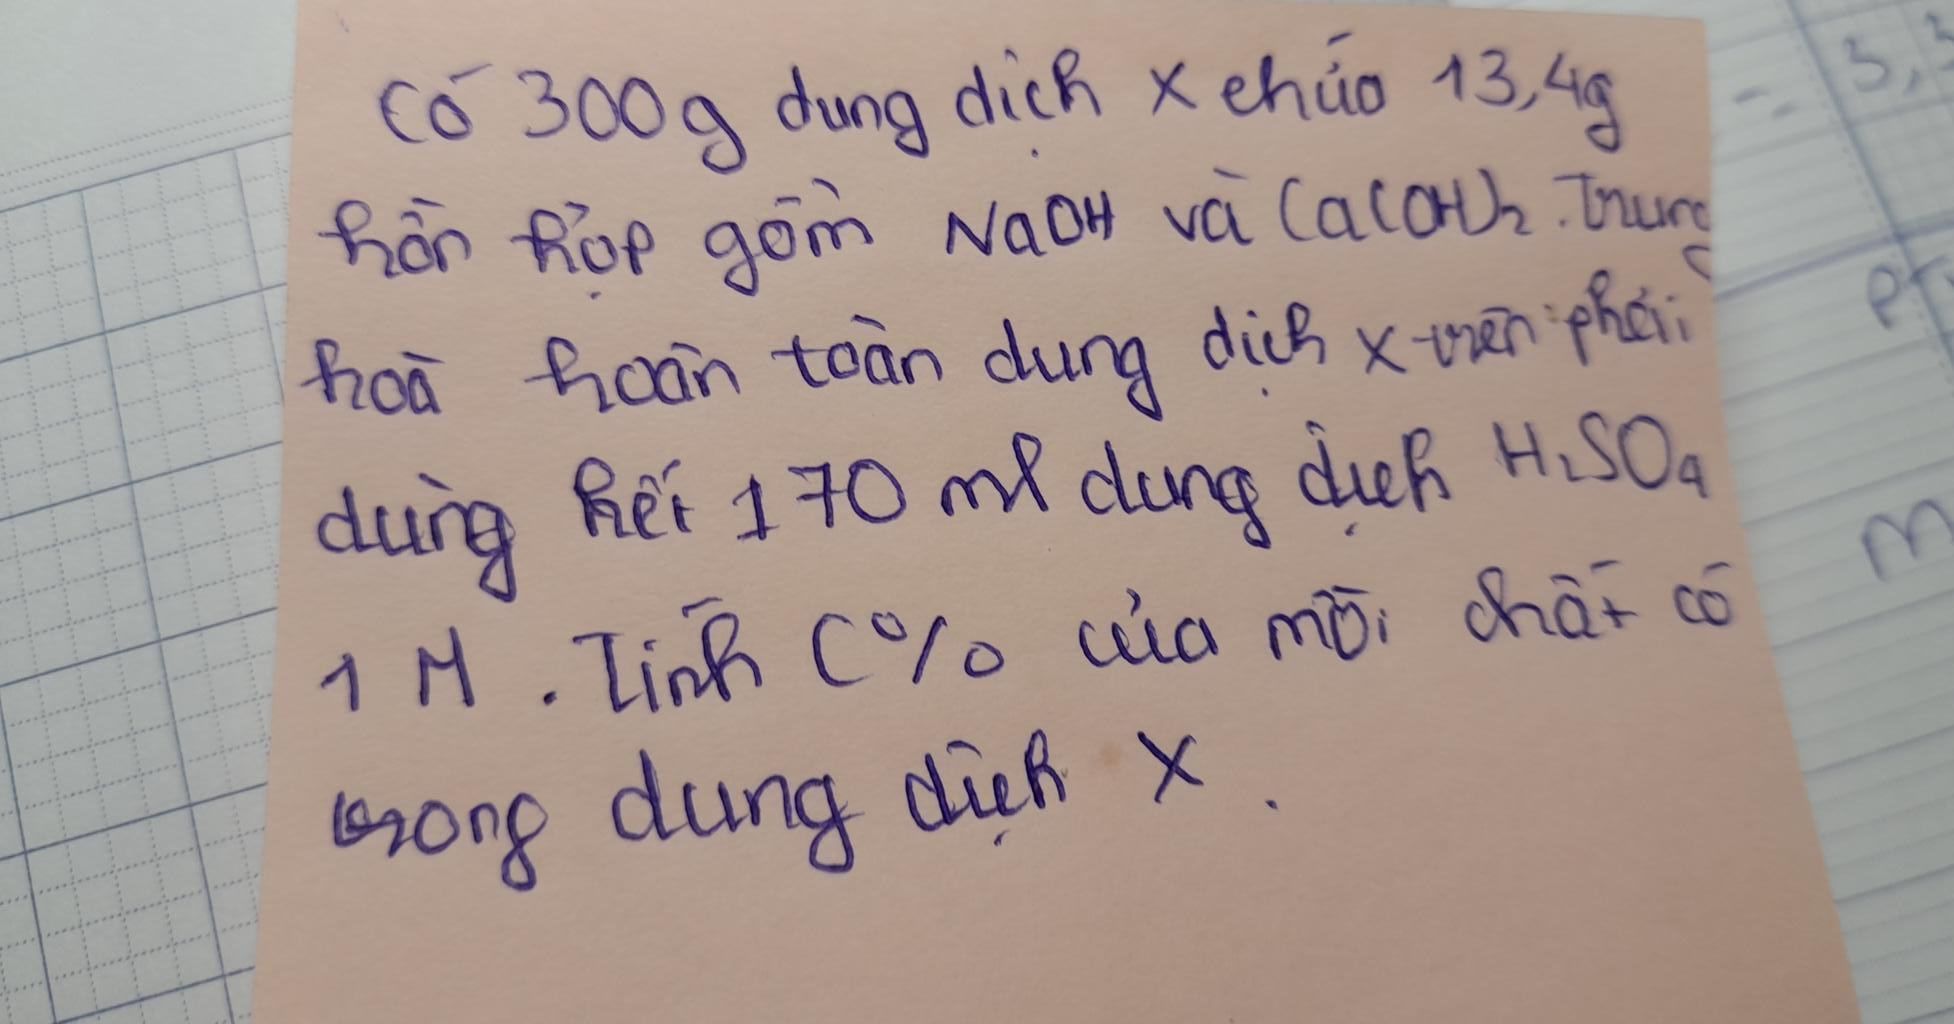 Có 300g dung dịch X chứa 13,4g
hỗn hợp gồm NaOH và Ca(OH)₂. Trung
hoà hoàn toàn dung dịch X trên phải
dùng hết 170 ml dung dịch H₂SO₄
1 M. Tính C% của mỗi chất có
trong dung dịch X.